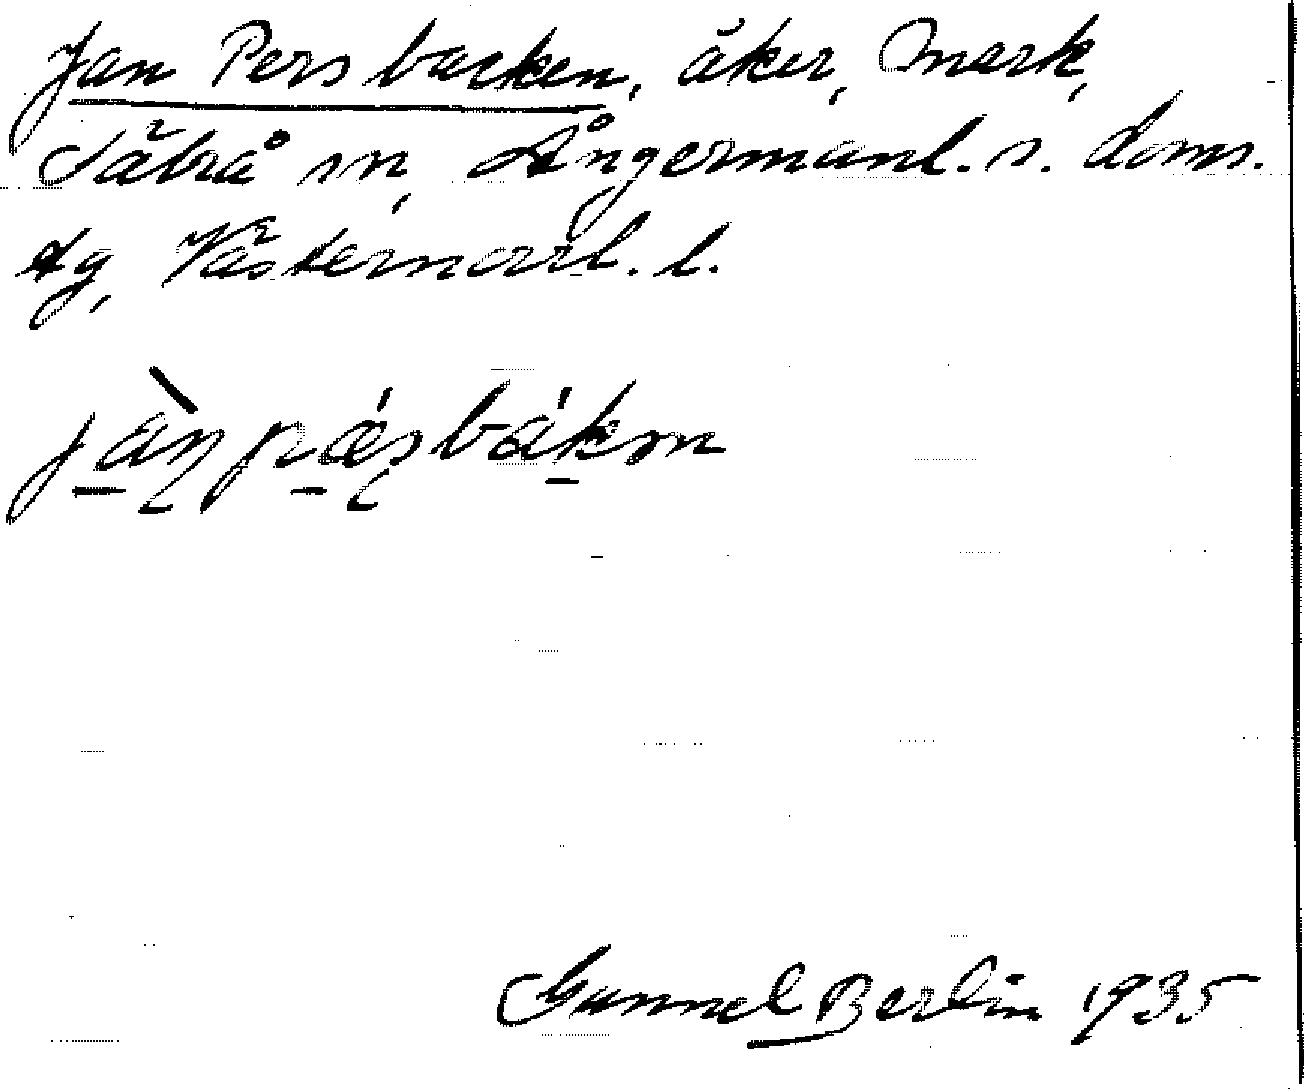 Jan Persbacken, åker, Mark,
Säbrå sn, Ångermanl. s. doms.
tg, Västernorrl. l.
Gunnel Berlin 1935